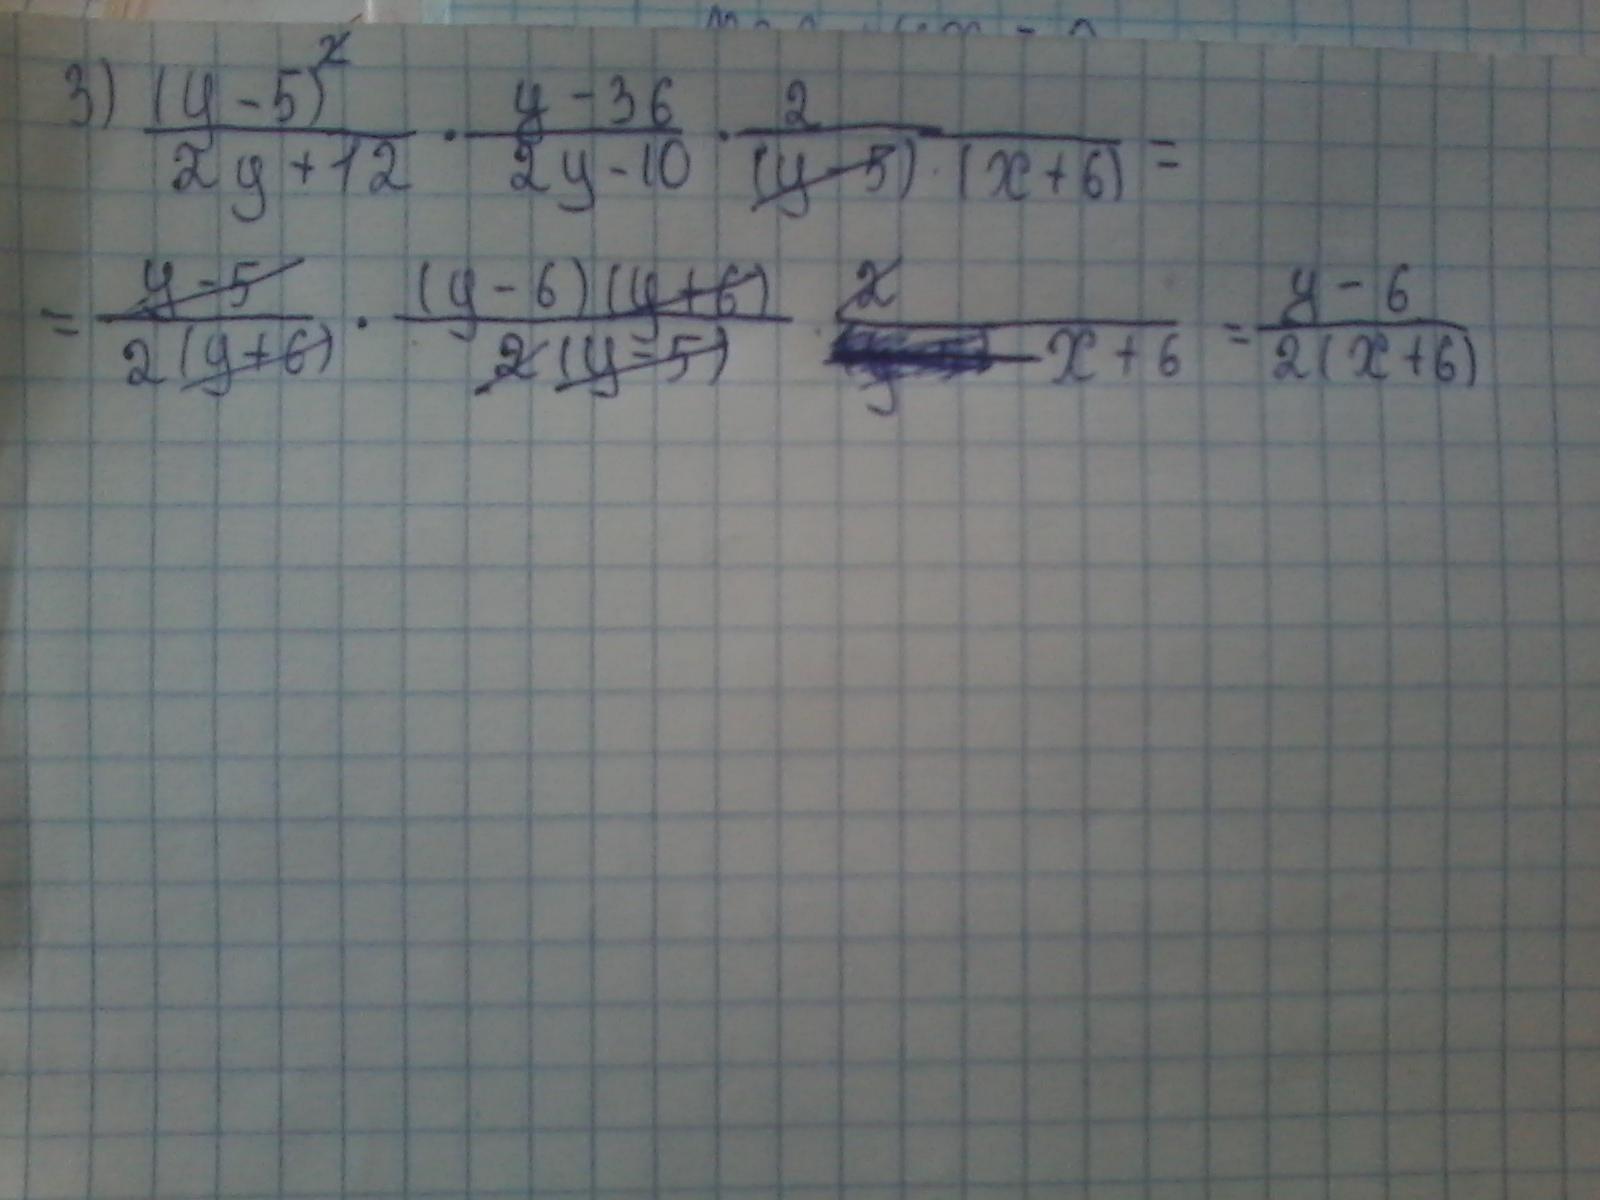 3) (y-5)² / 2y+12 · y-36 / 2y-10 · 2 / (y-5)·(x+6) =
= y-5 / 2(y+6) · (y-6)(y+6) / 2(y-5) · 2 / x+6 = y-6 / 2(x+6)